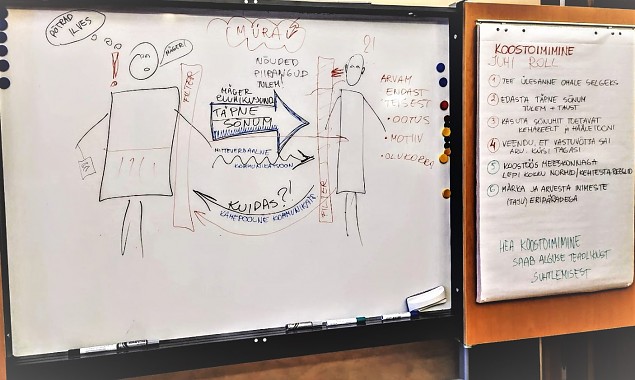 PÕTRAD
ILVES
MÄGER!
MÜRA
NÕUDED
PIIRANGUD
TULEM!
?!
FILTER
MÄGER
TÄPNE
SÕNUM
MITTEVERBAALNE
KUIDAS?!
KAHEPOOLNE KOMMUNIKATS
FILTER
ARVAM
ENDAST
TEISEST
• OOTUS
• MOTIIV
• OLUKORD
KOOSTOIMIMINE
JUHI ROLL
1 TEE ÜLESANNE OMALE SELGEKS
2 EDASTA TÄPNE SÕNUM
TULEM + TAUST
3 VAJUTA SÕNUMIT TOETAVAT
KEHAKEELT JA HÄÄLETOONI
4 VEENDU, ET VASTUVÕTJA SAI
ARU. KÜSI TAGASI
5 KOOSTÖÖS MEESKONNAGA
LEPI KOKKU NORMID/KEHTESTA REEGLID
6 MÄRKA JA ARVESTA INIMESTE
(TAJU) ERIPÄRADEGA
HEA KOOSTOIMIMINE
SAAB ALGUSE TEADLIKUST
SUHTLEMISEST